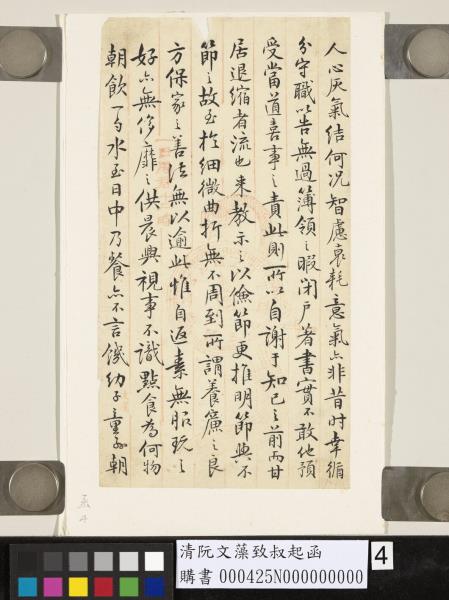 人心厌氣結何况智慮衰耗意氣亦非昔时幸循
分守職以告無過簿領之暇闭户著書實不敢他預
受當道喜事之責此則所以自謝于知己之前而甘
居退缩者流也来教示之以儉節更推明節與不
節之故至於细微曲折無不周到所謂養廉之良
方保家之善法無以逾此惟自返素無服玩之
好亦無侈靡之供晨興視事不識點食為何物
朝飲一勺水至日中乃餐亦不言饑幼子童孫朝
清阮文藻致叔起函
購書 000425N000000000
4